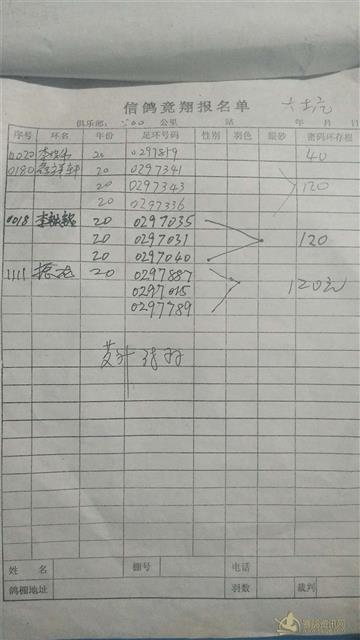 信鸽竞翔报名单
俱乐部: 500 公里 站 年 月 日
序号 环名 年份 足环号码 性别 羽色 眼砂 密码环存根
0020 20 0297819 40
0180 20 0297341
20 0297343 120
20 0297336
0018 20 0297035
20 0297031 120
20 0297040
1111 20 0297887
0297015 120元
0297789
姓名 棚号 电话
鸽棚地址 羽数 裁判
赛鸽资讯网